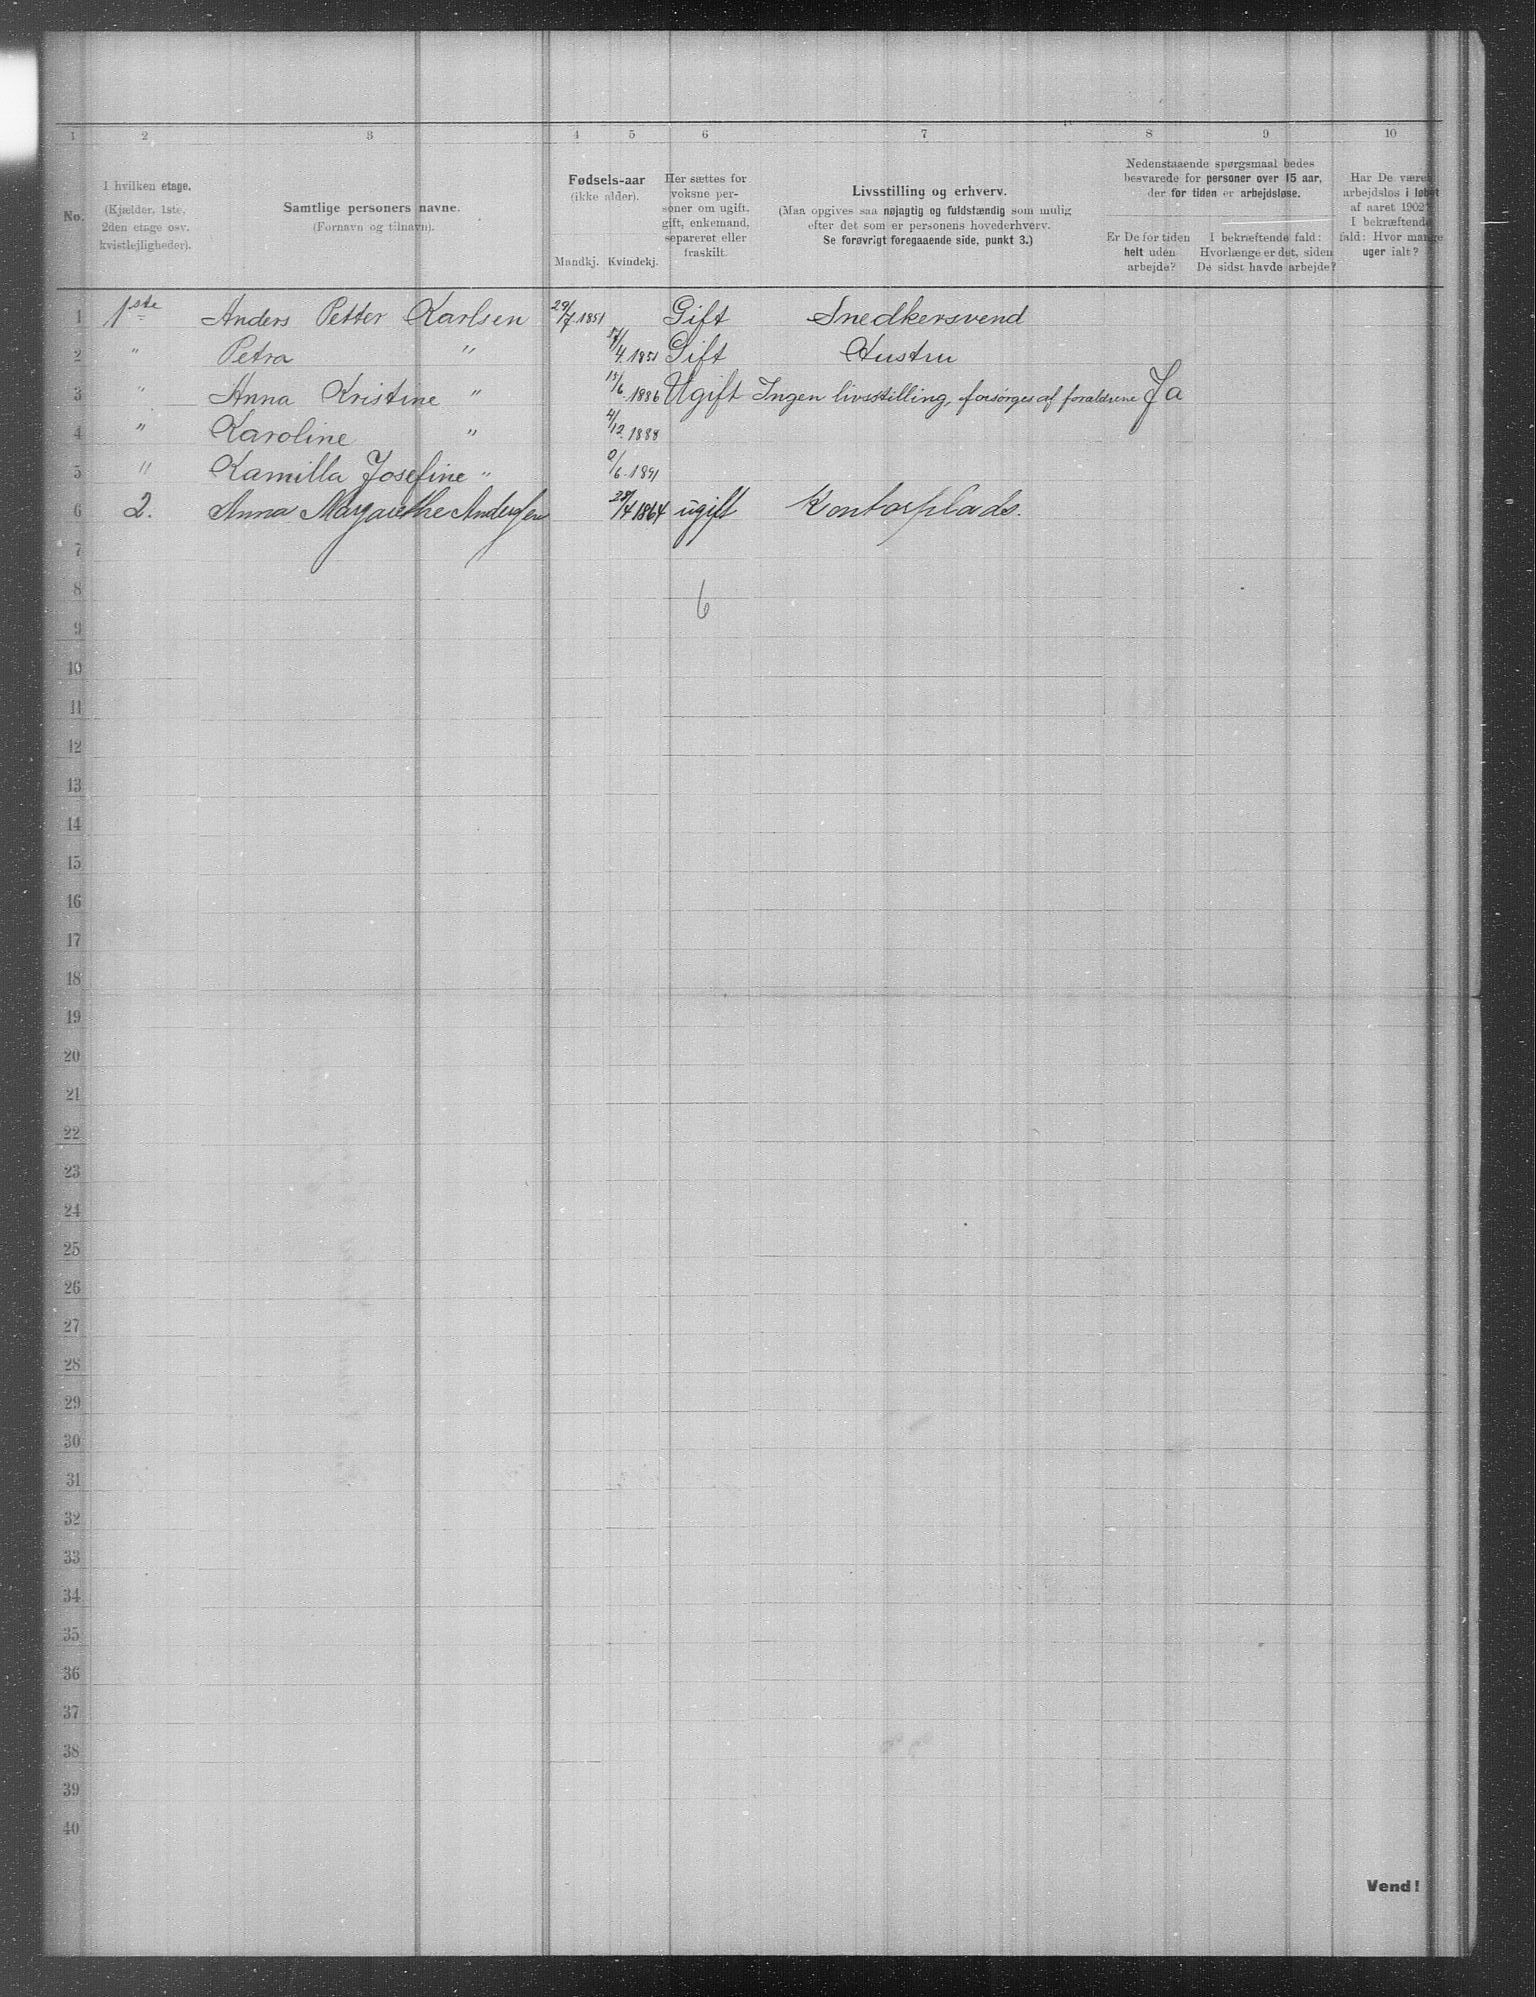 1 2 3 4 5 6 7 8 9 10
No.
I hvilken etage.
(Kjælder, 1ste,
2den etage osv.
kvistlejligheder).
Samtlige personers navne.
(Fornavn og tilnavn).
Fødsels-aar
(ikke alder).
Mandkj. Kvindekj.
Her sættes for
voksne per-
soner om ugift,
gift, enkemand,
separeret eller
fraskilt.
Livsstilling og erhverv.
(Maa opgives saa nøjagtig og fuldstændig som mulig
efter det som er personens hovederhverv.
Se forøvrigt foregaaende side, punkt 3.)
Nedenstaaende spørgsmaal bedes
besvarede for personer over 15 aar,
der for tiden er arbejdsløse.
Er De for tiden
helt uden
arbejde?
I bekræftende fald:
Hvorlænge er det, siden
De sidst havde arbejde?
Har De været
arbejdsløs i løbet
af aaret 1902?
I bekræftende
fald: Hvor mange
uger ialt?
1 1ste Anders Petter Karlsen 29/7 1851 Gift Snedkersvend
2 " Petra " /4. 1851 Gift Hustru
3 " Anna Kristine " 15/6. 1886 Ugift Ingen livsstilling, forsørges af forældrene Ja
4 " Karoline " 4/12. 1888
5 " Kamilla Josefine " /6. 1891
6 2. Anna Margarethe Andersen 28/4 1864 ugift Kontorplads.
7
8 6
9
10
11
12
13
14
15
16
17
18
19
20
21
22
23
24
25
26
27
28
29
30
31
32
33
34
35
36
37
38
39
40
Vend!